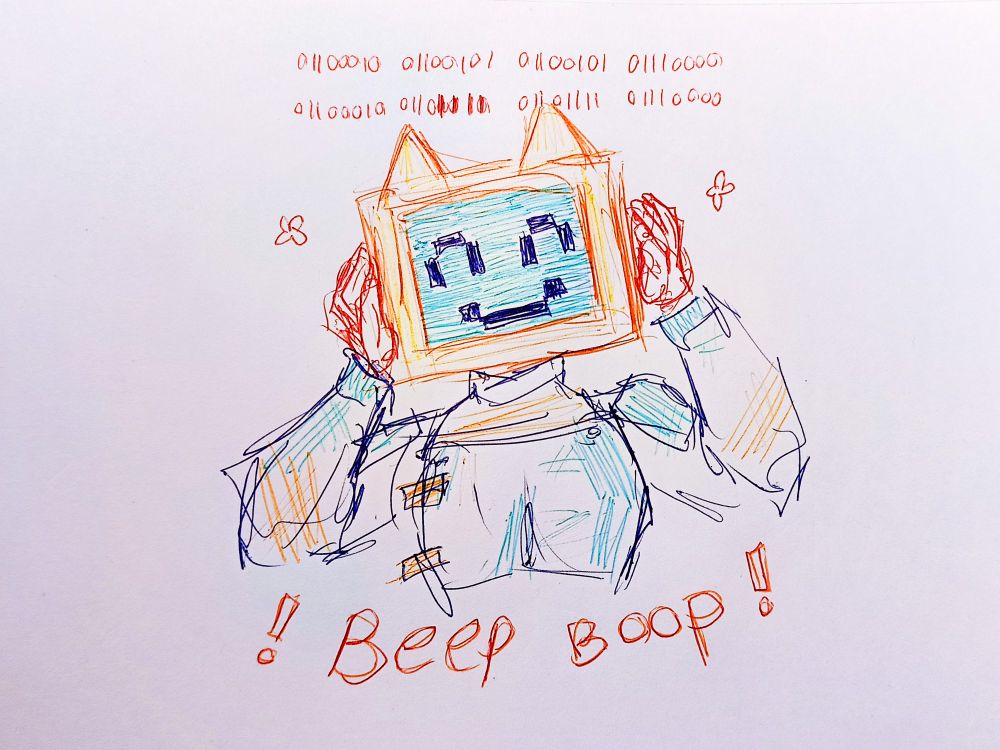 01100010 01100101 01100101 01110000
01100010 01101111 01101111 01110000
! Beep Boop !